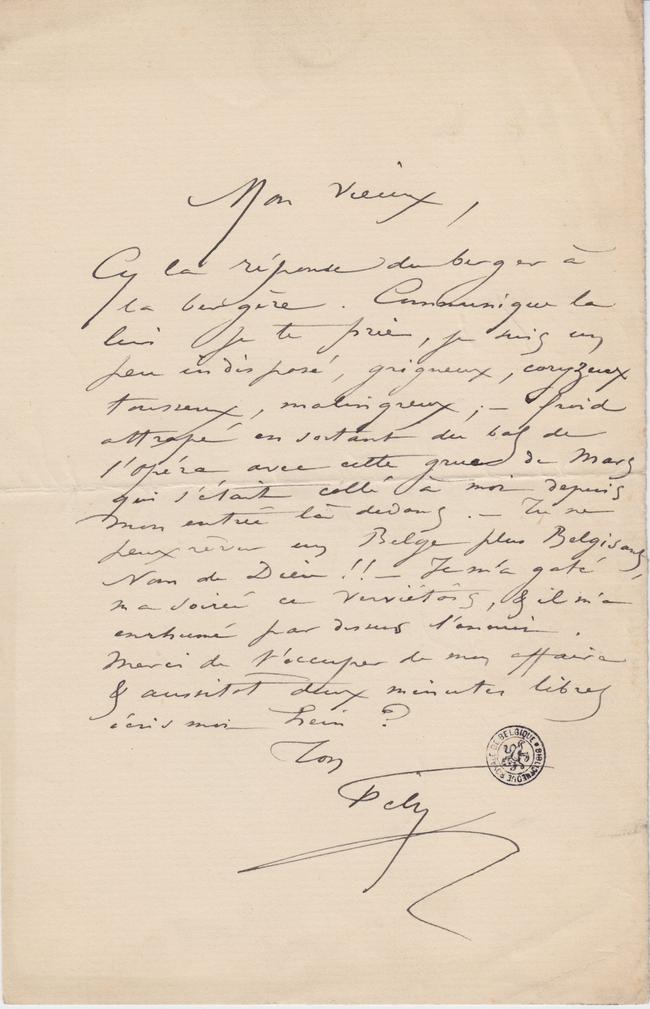 Mon vieux,
Cy la réponse du berger à
la bergère. Communique la
lui je te prie, je suis un
peu indisposé, grigneux, coryzeux
tousseux, malingreux, – froid
attrapé en sortant du bal de
l'opéra avec cette grue de Mars
qui s'était collé à moi depuis
mon entrée là dedans. – Tu ne
peux rêver un Belge plus Belgisant,
Nom de Dieu !! – Il m'a gaté
ma soirée ce Verviétois, & il m'a
enrhumé par dessus l'ennui.
Merci de t'occuper de mon affaire
& aussitot deux minutes libres
écris moi hein ?
Ton
Fély
BIBLIOTHEQUE ROYALE DE BELGIQUE